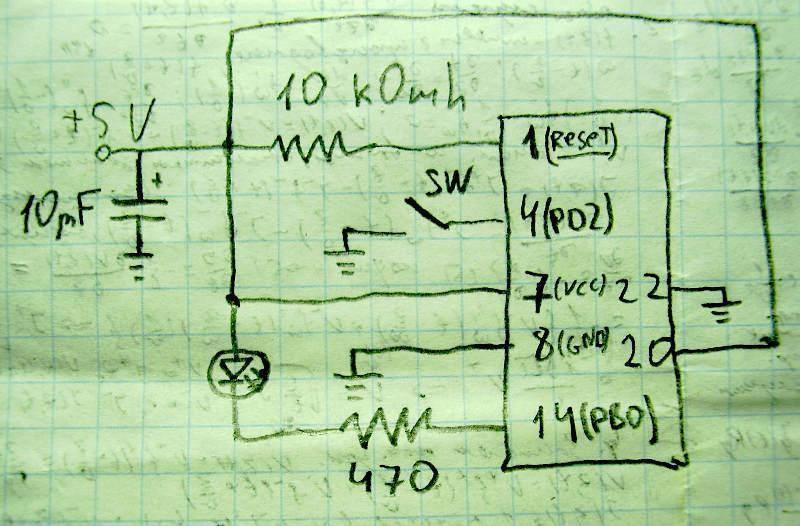 10 kOmh
+5V
1(RESET)
10µF
SW
4(PD2)
7(VCC) 22
8(GND) 20
14(PB0)
470